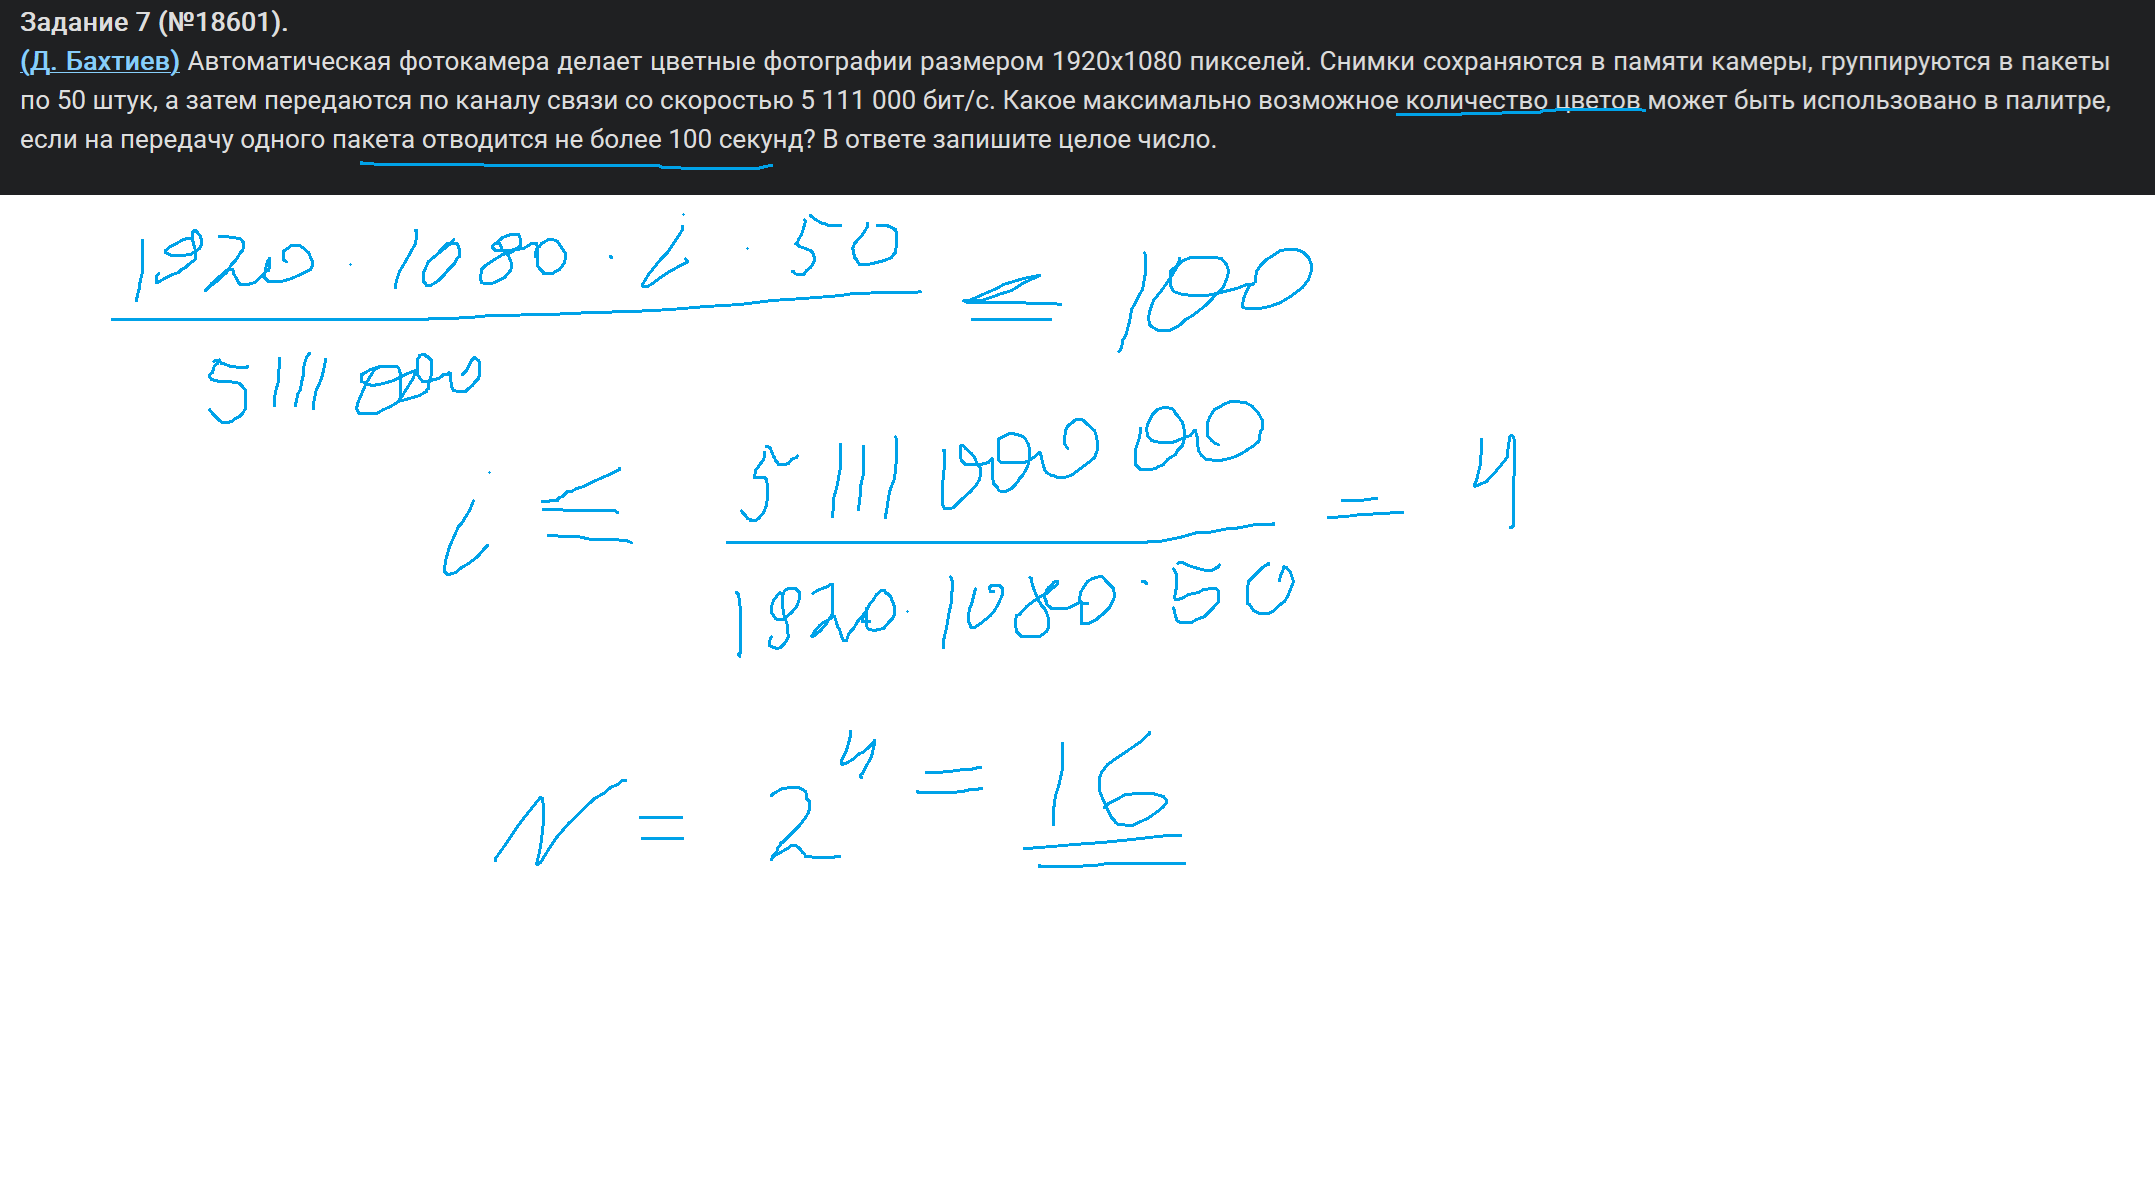 Задание 7 (№18601).
(Д. Бахтиев) Автоматическая фотокамера делает цветные фотографии размером 1920x1080 пикселей. Снимки сохраняются в памяти камеры, группируются в пакеты
по 50 штук, а затем передаются по каналу связи со скоростью 5 111 000 бит/с. Какое максимально возможное количество цветов может быть использовано в палитре,
если на передачу одного пакета отводится не более 100 секунд? В ответе запишите целое число.
1920 · 1080 · i · 50 ≤ 100
5111000
i ≤ 5111000 00 = 4
1920 · 1080 · 50
N = 2⁴ = 16